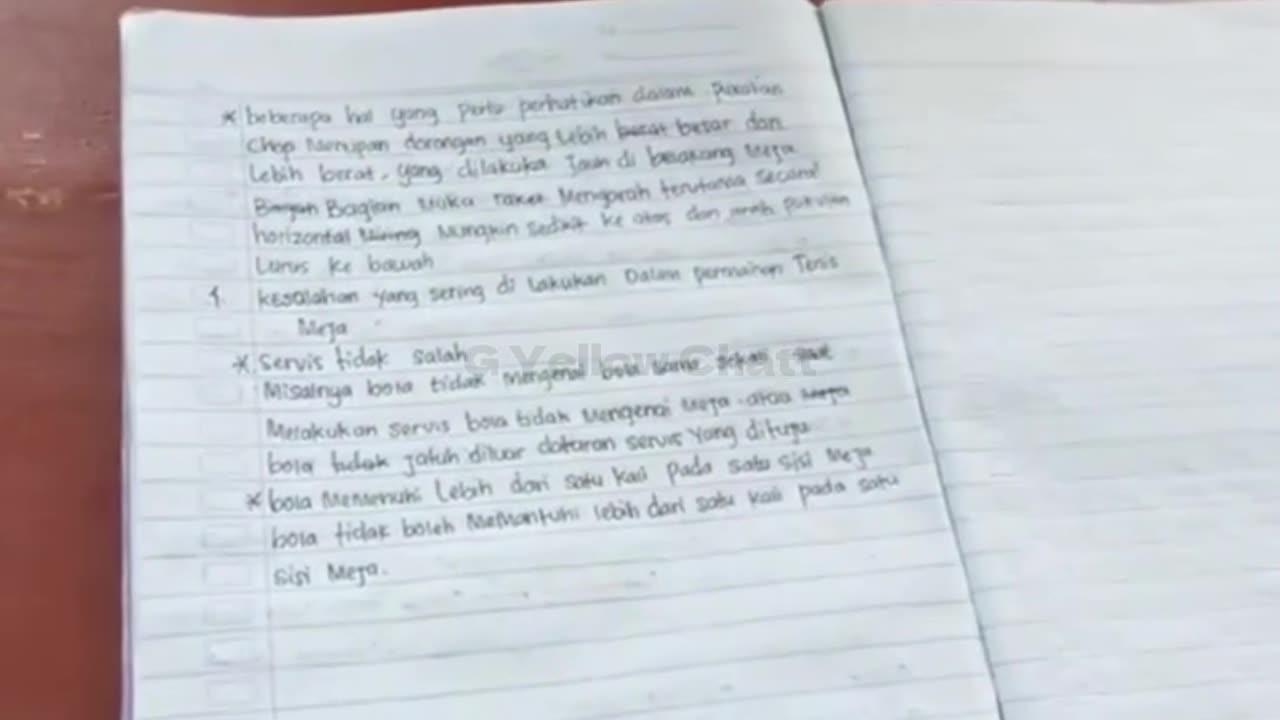 * beberapa hal yang perlu perhatikan dalam pukulan
Chop Merupan dorongan yang lebih berat besar dan
Lebih berat, yang dilakuka Jauh di belakang Meja
Bagian Bagian Muka raket Mengarah terutama secara
horizontal Miring Mungkin sedikit ke atas dan arah pukulan
Lurus ke bawah
f. kesalahan yang sering di lakukan Dalam permainan Tenis
Meja
* Servis tidak salah
Misalnya bola tidak mengenai bola sama sekali saat
Melakukan servis bola tidak Mengenai Meja atau Meja
bola tidak jatuh diluar dataran servis yang dituju
* bola Memenuhi Lebih dari satu kali pada satu sisi Meja
bola tidak boleh Memantuhi lebih dari satu kali pada satu
sisi Meja.
G.Yellow Chatt